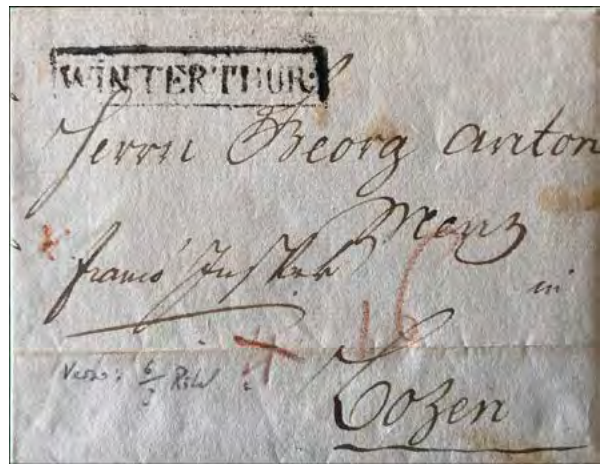 WINTERTHUR:
Herrn Georg Anton
Menz
franco
in
16
Verso: 6
Bozen